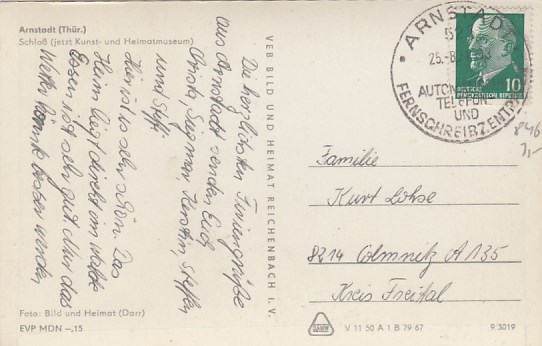 Arnstadt (Thür.)
Schloß (jetzt Kunst- und Heimatmuseum)
Die herzlichsten Feriengrüße
aus Arnstadt senden Euch
Christa, Siegmar, Kerstin, Steffen
und Steffi
Hier ist es sehr schön. Das
Heim liegt direkt am Walde
Essen ist sehr gut Nur das
Wetter könnte besser werden
Foto: Bild und Heimat (Darr)
EVP MDN –,15
VEB BILD UND HEIMAT REICHENBACH I. V.
ARNSTADT
25.-8.
AUTOM
TELEFON-
UND
FERNSCHREIBZENTR
10
DEUTSCHE
DEMOKRATISCHE REPUBLIK
846
Familie
Kurt Lohse
8214 Colmnitz A 135
Kreis Freital
V 11 50 A 1 B 79 67
9/3019